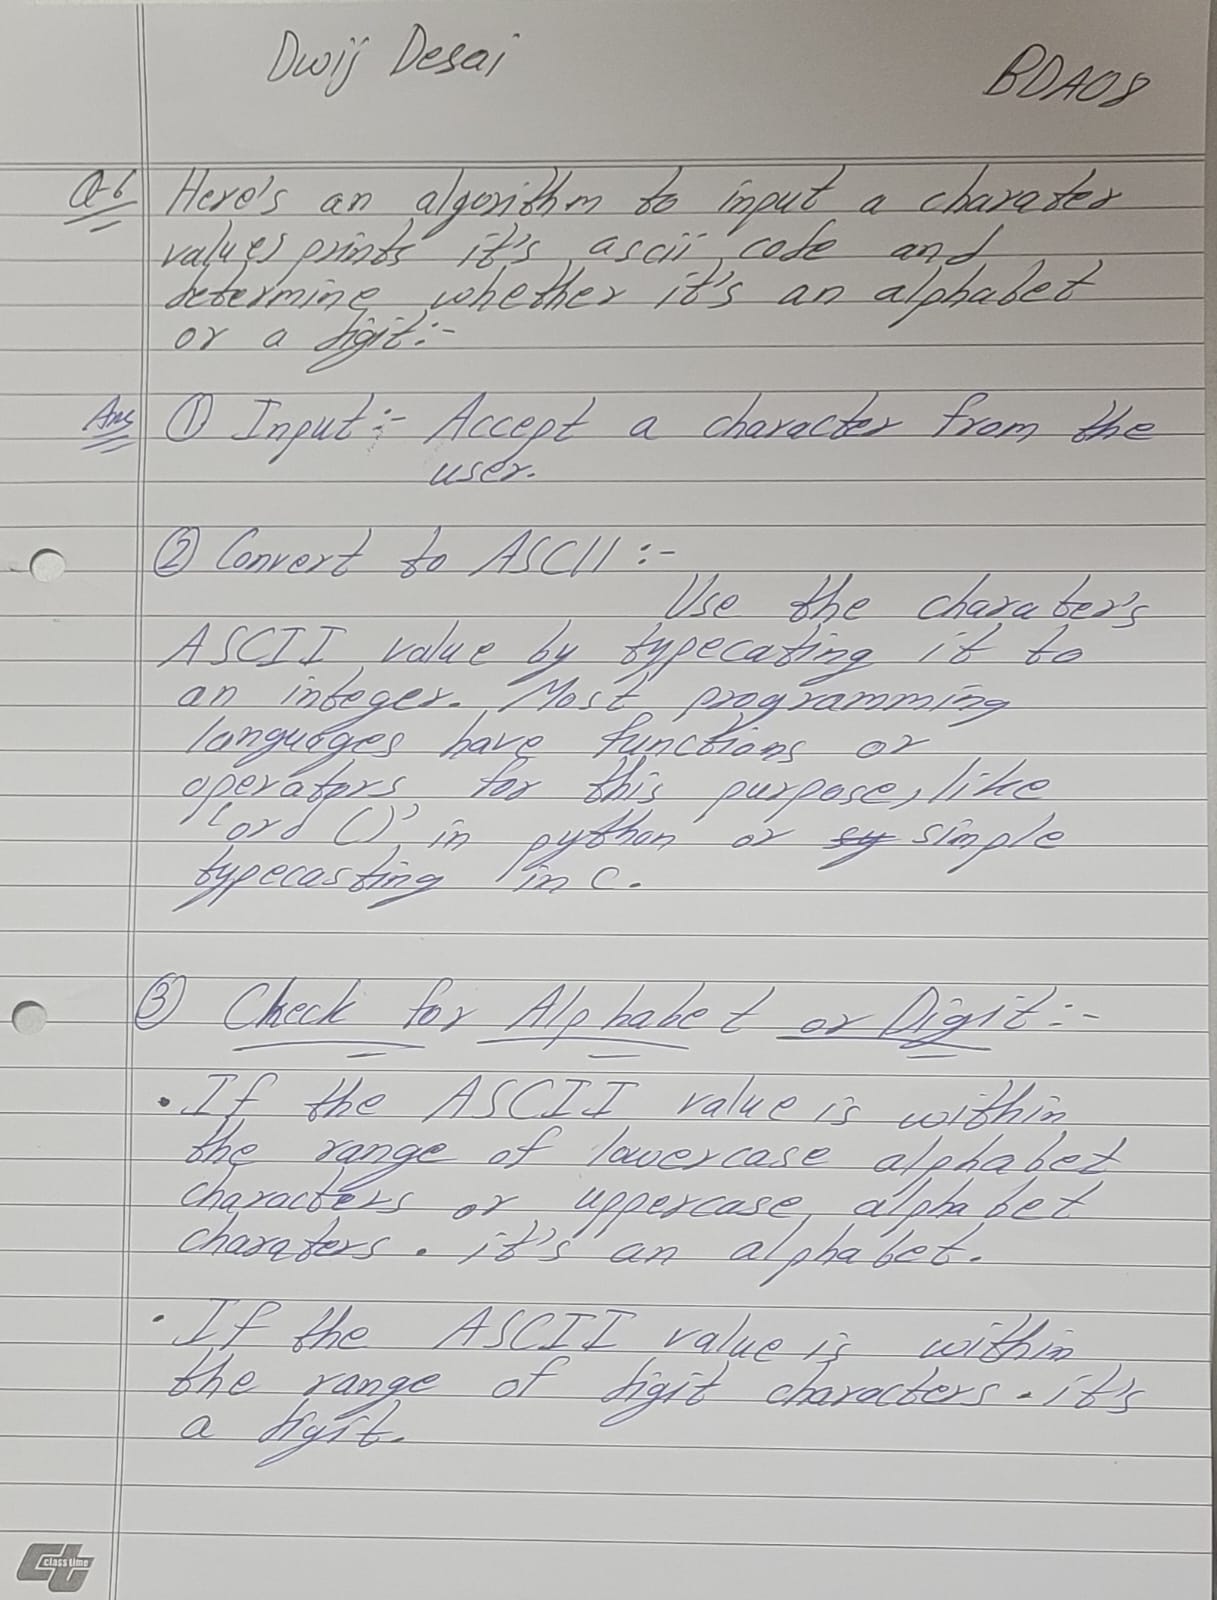 Dwij Desai
BDA08
Q-6 Here's an algorithm to input a charater
values prints it's ascii code and
determine whether it's an alphabet
or a digit:-
Ans ① Input:- Accept a character from the
user.
② Convert to ASCII :-
Use the charater's
ASCII value by typecating it to
an integer. Most programming
languages have functions or
operators for this purpose, like
'ord ()' in python or sy simple
typecasting in C.
③ Check for Alphabet or Digit:-
• If the ASCII value is within
the range of lowercase alphabet
characters or uppercase alphabet
charaters. it's an alphabet.
• If the ASCII value is within
the range of digit characters. it's
a digit.
ct class time